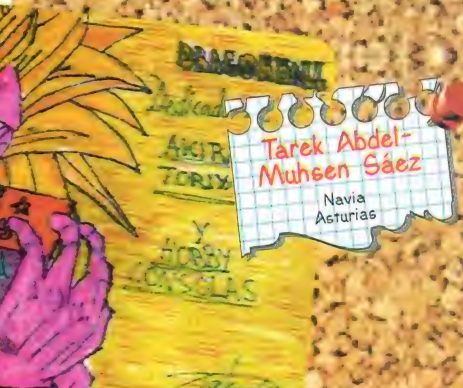 DRAGONBALL
Dedicado
AKIRA
TORIY
Y
HOBBY
CONSOLAS
Tarek Abdel-
Muhsen Sáez
Navia
Asturias